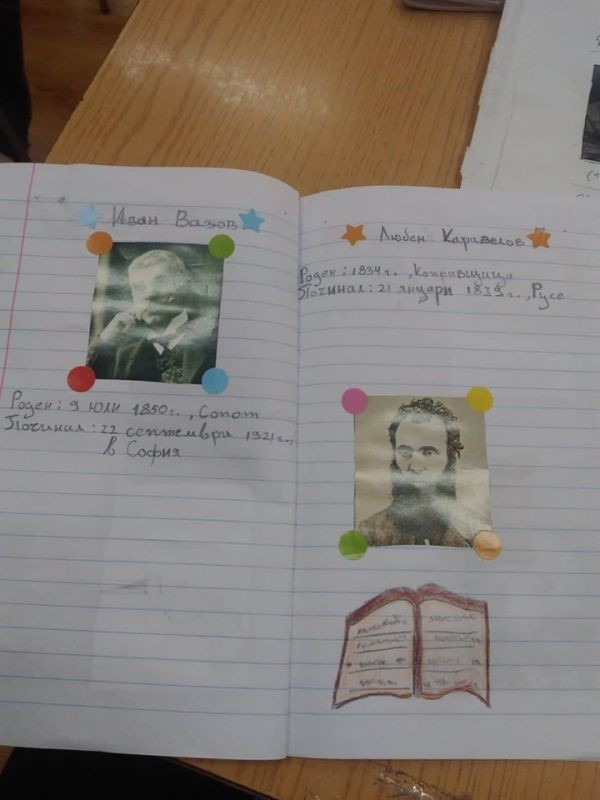 Иван Вазов
Роден: 9 юли 1850г., Сопот
Починал: 22 септември 1921г.,
в София
Любен Каравелов
Роден: 1834г., Копривщица
Починал: 21 януари 1879г., Русе